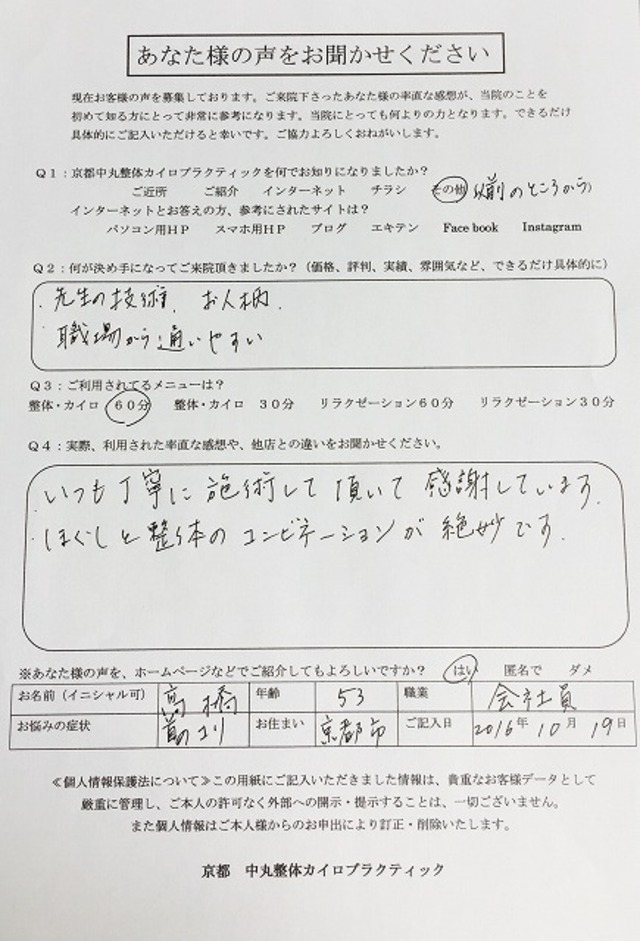 あなた様の声をお聞かせください
現在お客様の声を募集しております。ご来院下さったあなた様の率直な感想が、当院のことを
初めて知る方にとって非常に参考になります。当院にとっても何よりの力となります。できるだけ
具体的にご記入いただけると幸いです。ご協力よろしくおねがいします。
Q1：京都中丸整体カイロプラクティックを何でお知りになりましたか？
ご近所 ご紹介 インターネット チラシ その他 以前のところから
インターネットとお答えの方、参考にされたサイトは？
パソコン用HP スマホ用HP ブログ エキテン Face book Instagram
Q2：何が決め手になってご来院頂きましたか？（価格、評判、実績、雰囲気など、できるだけ具体的に）
・先生の技術、お人柄、
・職場から通いやすい
Q3：ご利用されてるメニューは？
整体・カイロ 60分 整体・カイロ 30分 リラクゼーション60分 リラクゼーション30分
Q4：実際、利用された率直な感想や、他店との違いをお聞かせください。
・いつも丁寧に施術して頂いて感謝しています。
・ほぐしと整体のコンビネーションが絶妙です。
※あなた様の声を、ホームページなどでご紹介してもよろしいですか？ はい 匿名で ダメ
お名前（イニシャル可） 高橋 年齢 53 職業 会社員
お悩みの症状 首のコリ お住まい 京都市 ご記入日 2016年10月19日
≪個人情報保護法について≫この用紙にご記入いただきました情報は、貴重なお客様データとして
厳重に管理し、ご本人の許可なく外部への開示・提示することは、一切ございません。
また個人情報はご本人様からのお申出により訂正・削除いたします。
京都 中丸整体カイロプラクティック